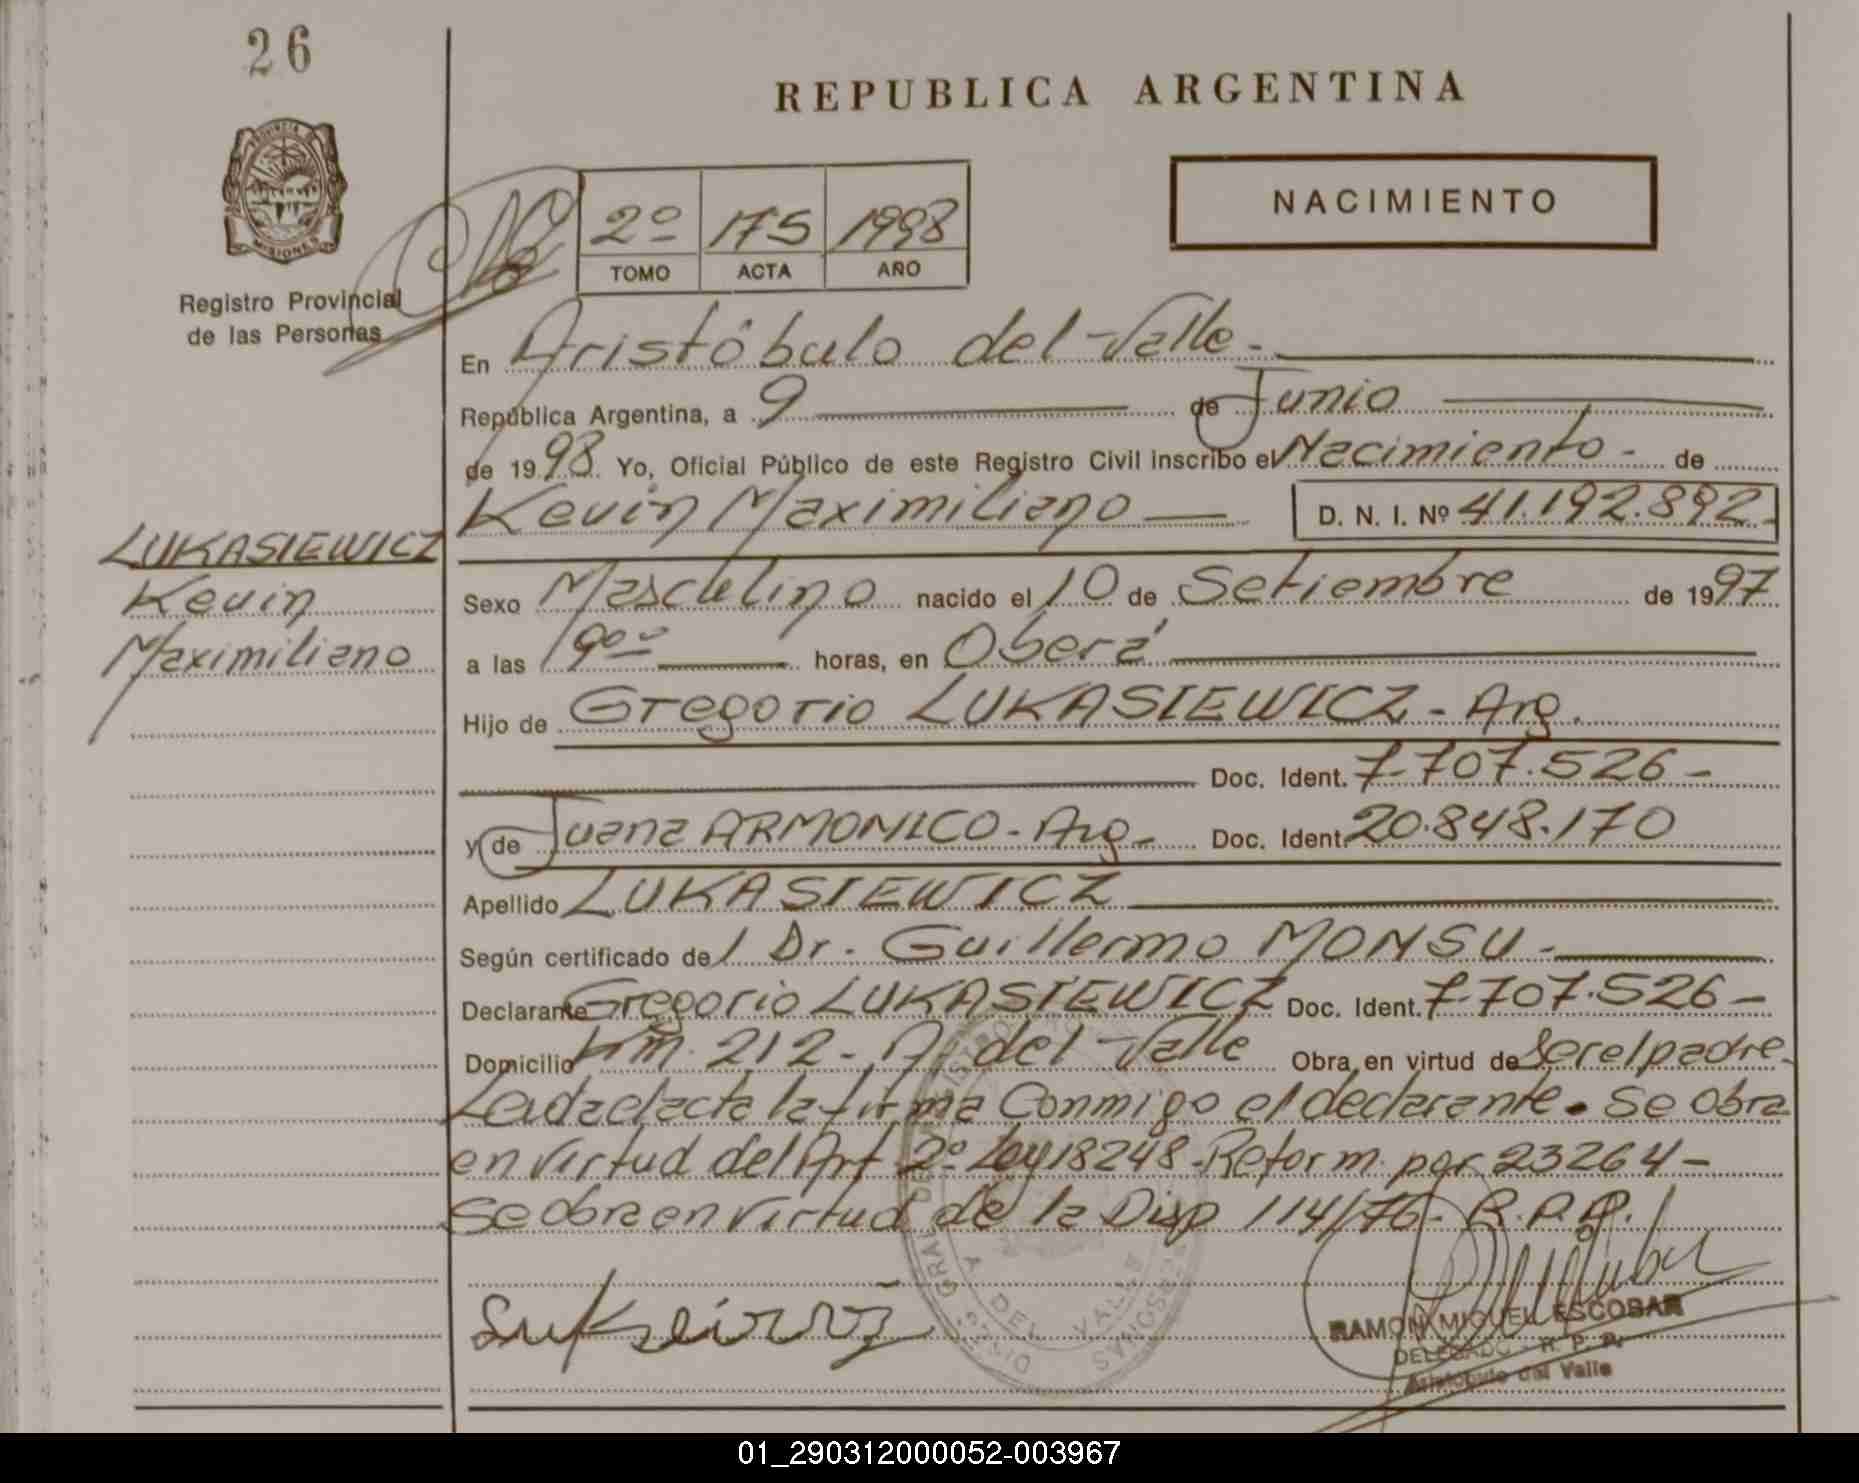 26
REPUBLICA ARGENTINA
PROVINCIA DE
MISIONES
NACIMIENTO
2º 175 1998
TOMO ACTA AÑO
Registro Provincial
de las Personas
En Aristóbulo del Valle.-
República Argentina, a 9 de Junio
de 1998. Yo, Oficial Público de este Registro Civil inscribo el Nacimiento - de
Kevin Maximiliano D. N. I. Nº 41.192.892-
LUKASIEWICZ
Kevin
Maximiliano
Sexo Masculino nacido el 10 de Setiembre de 1997
a las 19ºº horas, en Oberá
Hijo de Gregorio LUKASIEWICZ - Arg.
Doc. Ident. 7.707.526 -
y de Juana ARMONICO - Arg - Doc. Ident. 20.848.170
Apellido LUKASIEWICZ
Según certificado del Dr. Guillermo MONSU -
Declarante Gregorio LUKASIEWICZ Doc. Ident. 7.707.526 -
Domicilio Km. 212 - A. del Valle Obra en virtud de Ser el padre.
Leida el acta la firma Conmigo el declarante. Se obra
en virtud del Art 2º Ley 18248 - Reform. por 23264 -
Se obra en virtud de la Disp 114/76 - R.P.P.
A. DEL VALLE
RAMON MIGUEL ESCOBAR
DELEGADO - R. P. P.
Aristobulo del Valle
01_290312000052-003967